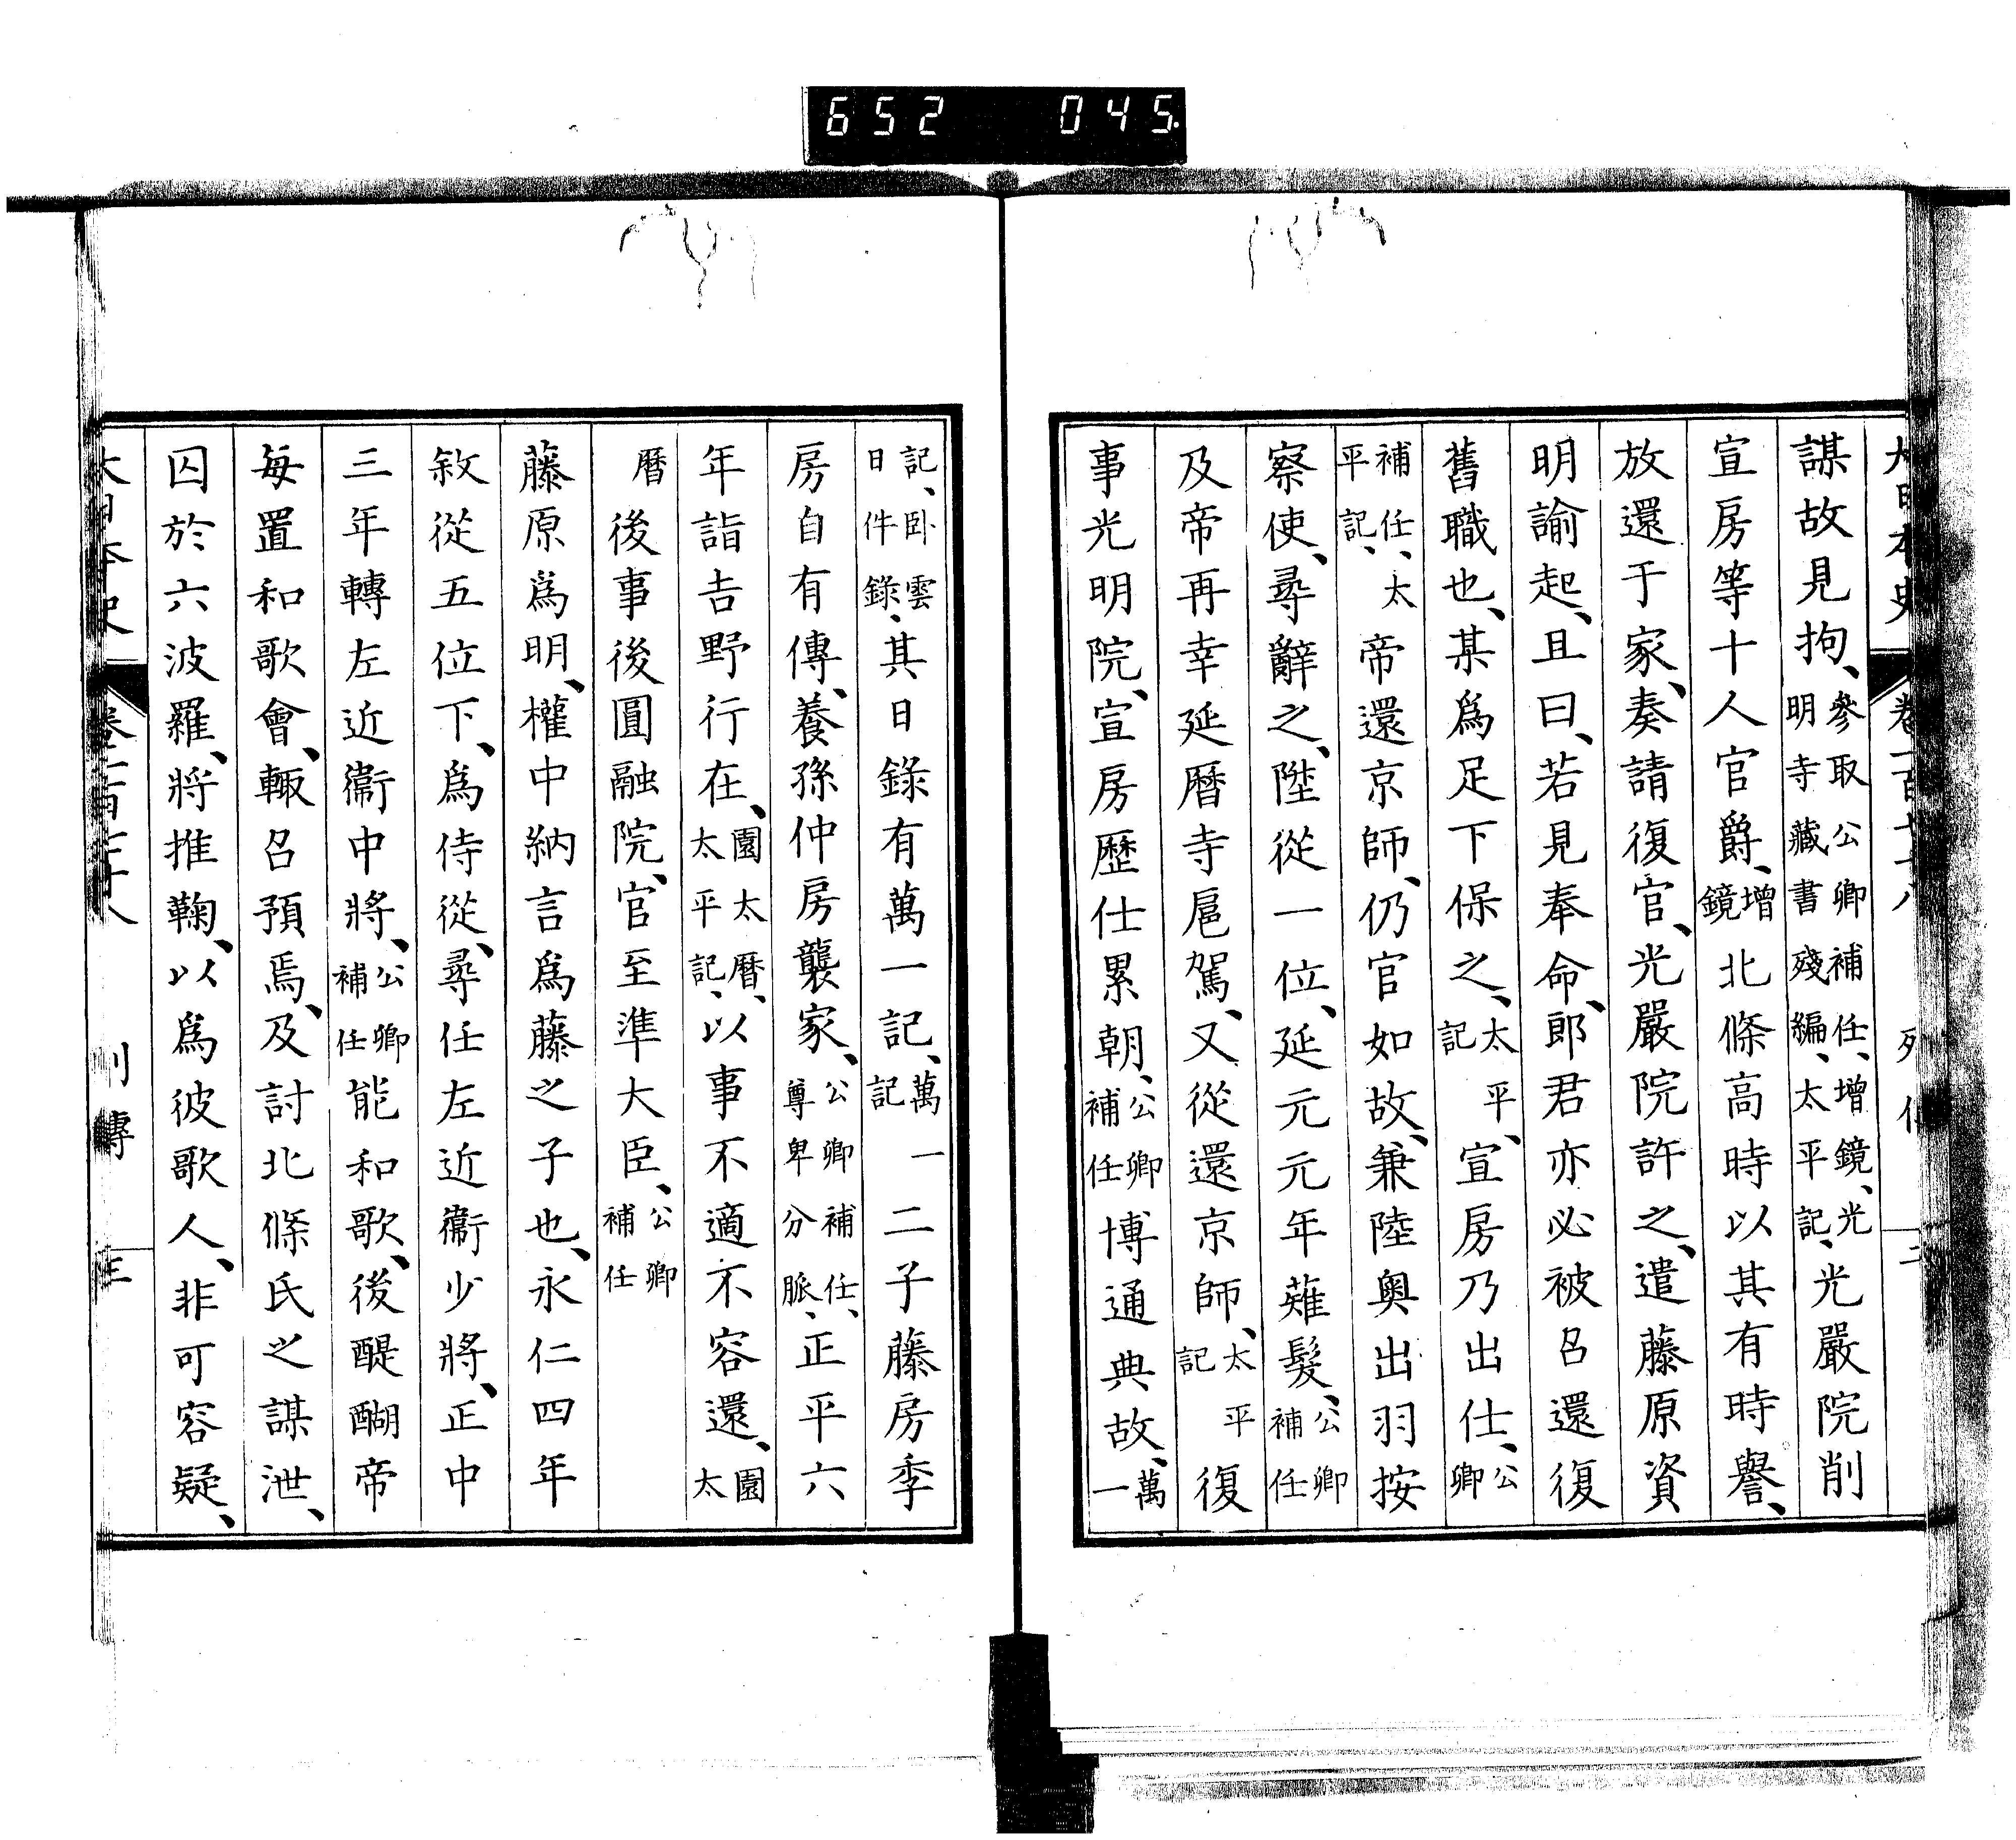 652 045.
大日本史 卷一百六十八 列傳 二
謀故見拘、參取公卿補任、增鏡、光明寺藏書殘編、太平記、光嚴院削
宣房等十人官爵、增鏡北條高時以其有時譽、
放還于家、奏請復官、光嚴院許之、遣藤原資
明諭起、且曰、若見奉命、郎君亦必被召還復
舊職也、某爲足下保之、太平記、宣房乃出仕、公卿
補任、太平記、帝還京師、仍官如故、兼陸奧出羽按
察使、尋辭之、陞從一位、延元元年薙髮、公卿補任
及帝再幸延曆寺扈駕、又從還京師、太平記復
事光明院、宣房歷仕累朝、公卿補任博通典故、萬一
記、卧雲日件錄、其日錄有萬一記、萬一記二子藤房季
房自有傳、養孫仲房襲家、公卿補任、尊卑分脈、正平六
年詣吉野行在、園太曆、太平記、以事不適不容還、園太
曆後事後圓融院、官至準大臣、公卿補任
藤原爲明、權中納言爲藤之子也、永仁四年
敘從五位下、爲侍從、尋任左近衞少將、正中
三年轉左近衞中將、公卿補任能和歌、後醍醐帝
每置和歌會、輒召預焉、及討北條氏之謀泄、
囚於六波羅、將推鞠、以爲彼歌人、非可容疑、
列傳 三